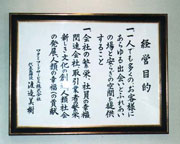 経営目的
一、一人でも多くのお客様に
あらゆる出会いとふれあい
の場と安らぎの空間を提供
すること
一、会社の繁栄、社員の幸福
関連会社・取引業者の繁栄
新しき文化の創造、人類社会
の発展、人類の幸福への貢献
代表取締役 渡邉美樹